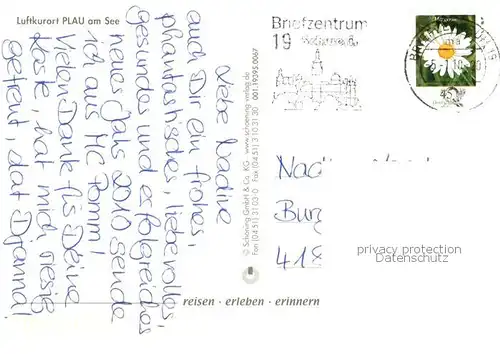 Luftkurort PLAU am See
Liebe Nadine
auch Dir ein frohes,
phantastisches, liebevolles,
gesundes und erfolgreiches
neues Jahr 2010 sende
ich aus MC Pomm!
Vielen Dank für Deine
Karte, hat mich riesig
gefreut, dat Djanna!
© Schöning GmbH & Co. KG · www.schoening-verlag.de
Fon (0451) 31 03-0 Fax (0451) 3 10 31 30 001.19395.0067
Briefzentrum
19
45
Burg
418
privacy protection
Datenschutz
reisen · erleben · erinnern